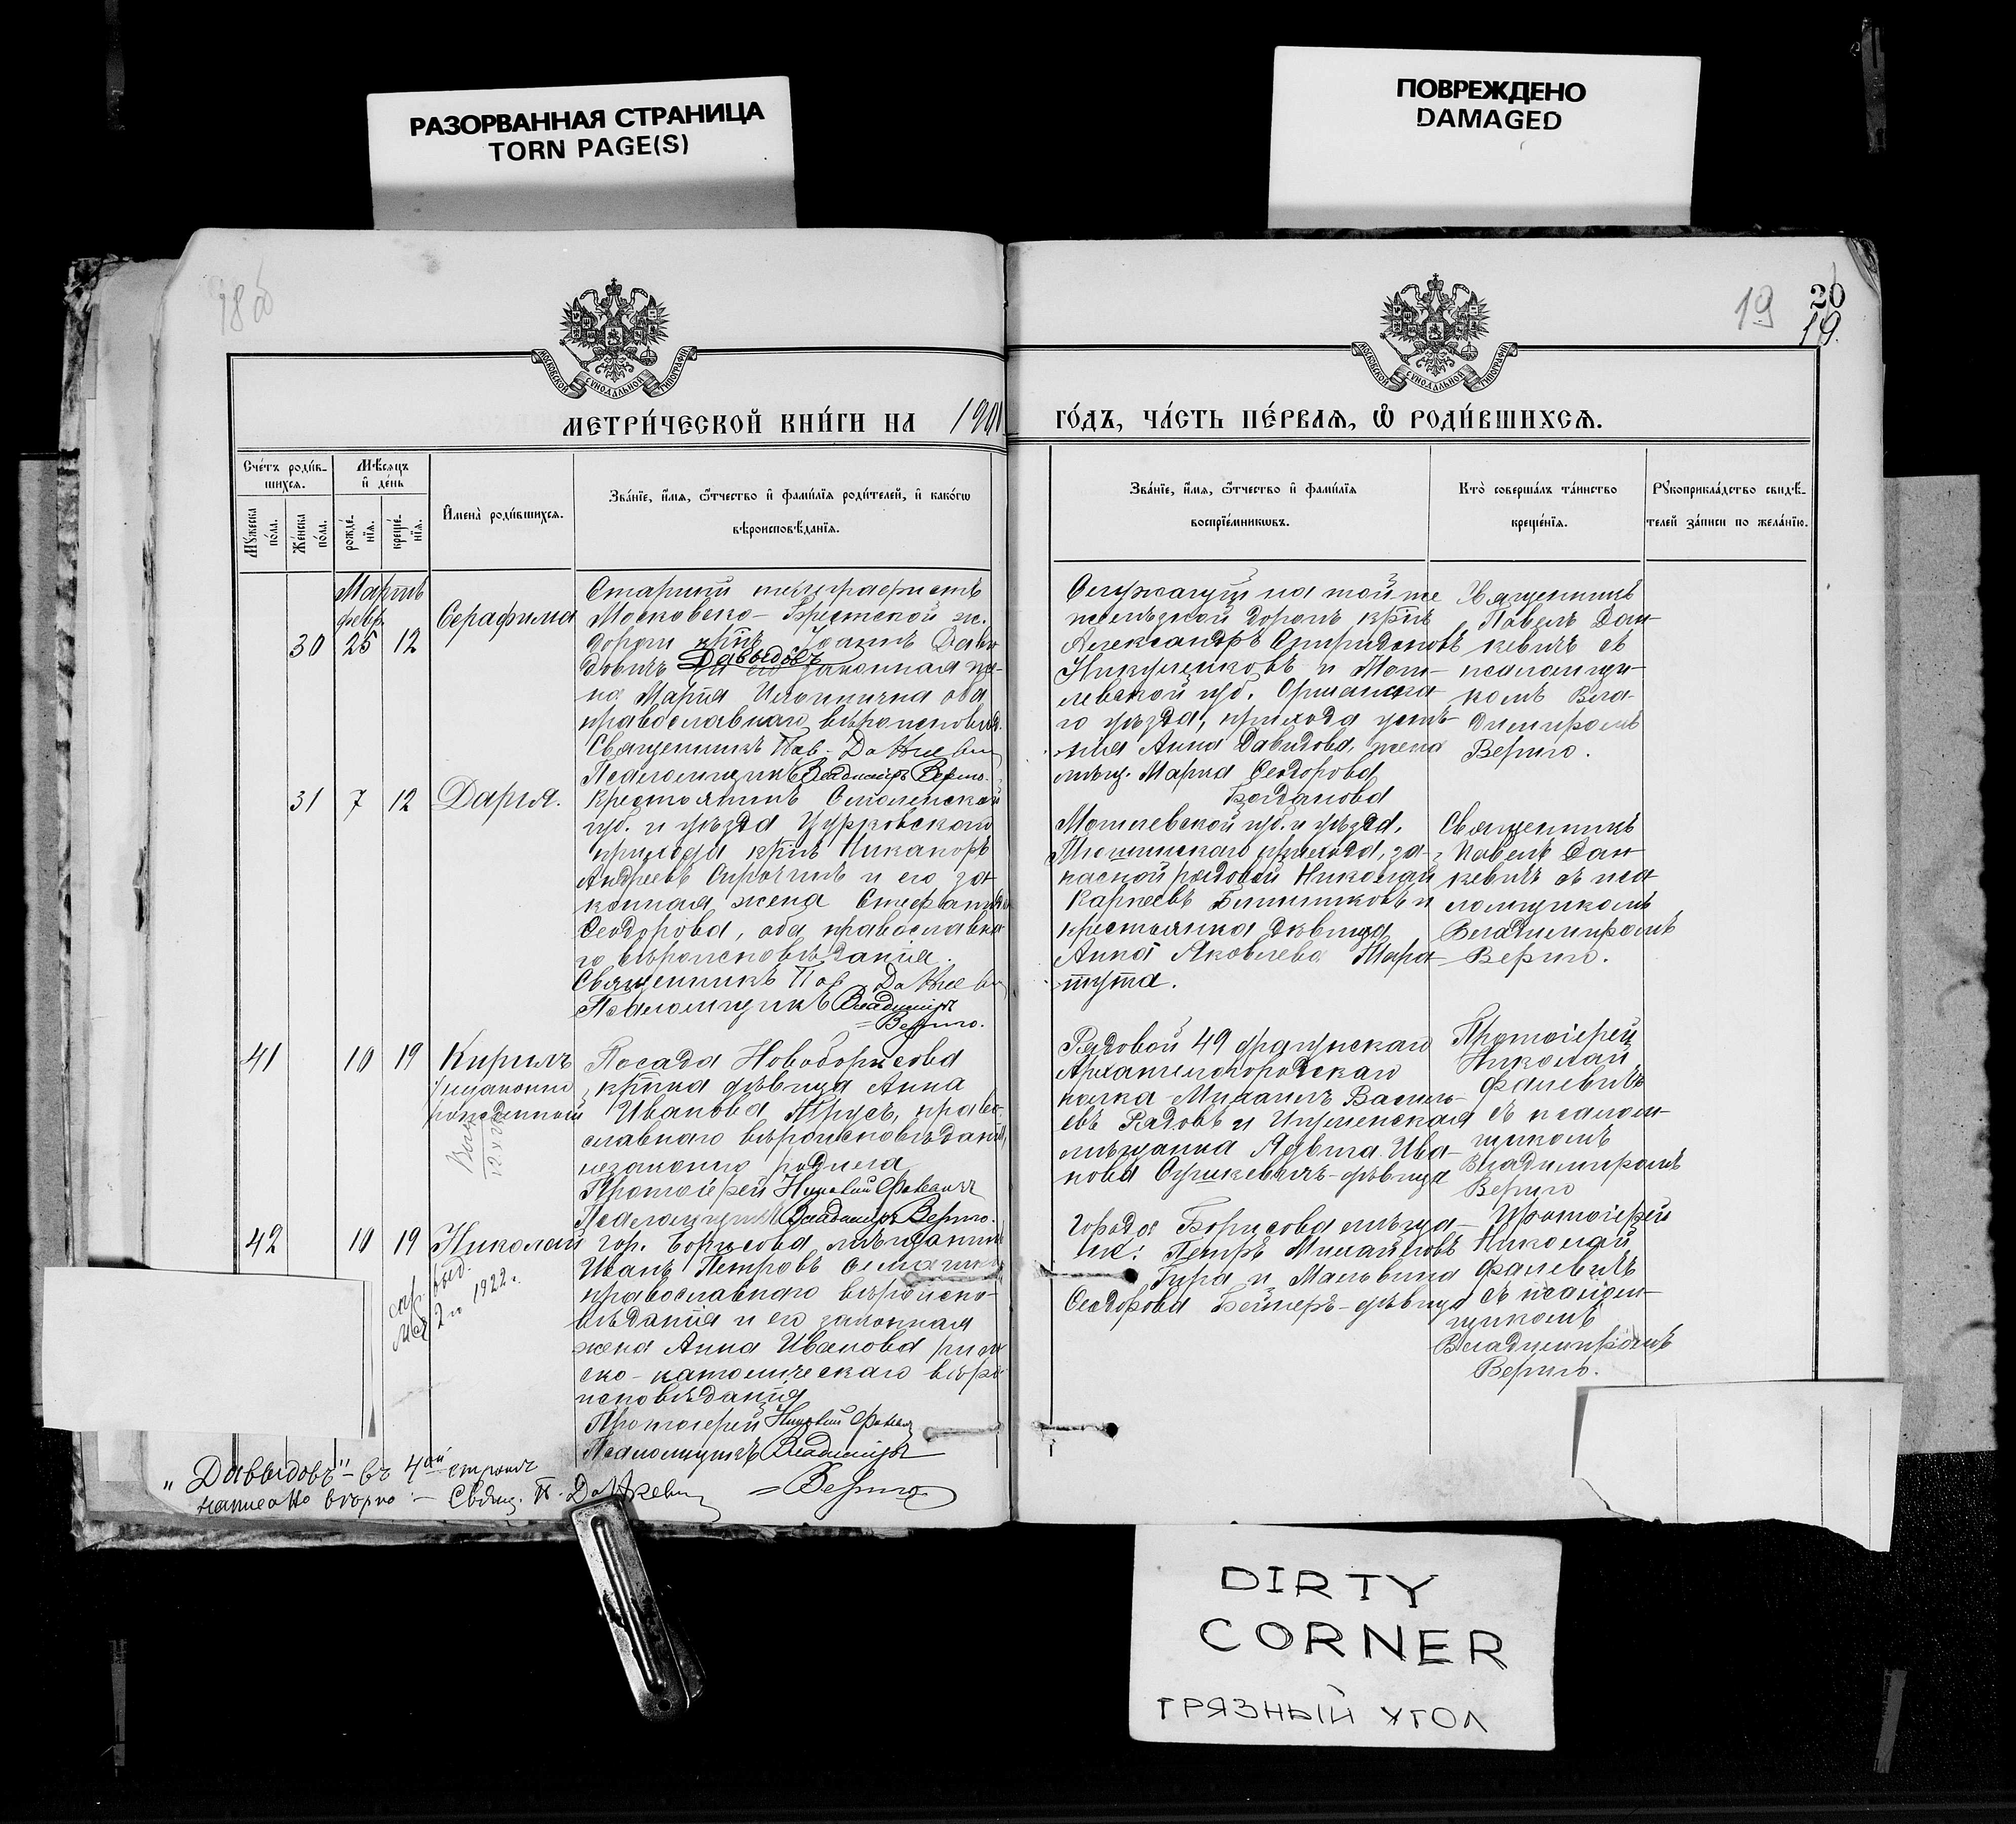 РАЗОРВАННАЯ СТРАНИЦА
TORN PAGE(S)
ПОВРЕЖДЕНО
DAMAGED
18 об
19
20
19.
МОСКОВСКОЙ СѴНОДАЛЬНОЙ ТИПОГРАФІИ
МОСКОВСКОЙ СѴНОДАЛЬНОЙ ТИПОГРАФІИ
МЕТРИ́ЧЕСКОЙ КНИ́ГИ НА
ГО́ДЪ, ЧА́СТЬ ПЕ́РВАЯ, Ѡ҆ РОДИ́ВШИХСЯ.
Сче́тъ роди́в-
шихся.
Мѣ́сяцъ
и҆ де́нь
Мꙋ́жеска
по́ла.
Же́нска
по́ла.
рожде́-
нїя.
креще́-
нїя.
И҆мена̀ роди́вшихся.
Зва́нїе, и҆́мя, ѻ҆́тчество и҆ фами́лїя роди́телей, и҆ како́гѡ
вѣроисповѣ́данїя.
Зва́нїе, и҆́мя, ѻ҆́тчество и҆ фами́лїя
воспрїе́мникѡвъ.
Кто̀ соверша́лъ та́инство
креще́нїя.
Рꙋкоприкла́дство свидѣ́-
телей за́писи по жела́нїю.
Мартъ
февр.
30 25 12 Серафима
Старшій телеграфистъ
Московско-Брестской ж.
дороги кр͞нъ Іоаннъ Давы
довичъ Давыдовъ законная же-
на Марія Илиинична оба
православнаго вѣроисповѣд.
Священникъ Пав. Данкевич
Псаломщикъ Владиміръ Верыго.
Служащій на той же
желѣзной дорогѣ кр͞нъ
Александръ Спиридоновъ
Никуленковъ и Моги-
левской губ. Оршанска-
го уѣзда, прихода
Анна Давидова, жена
мѣщ. Марія Ѳеодорова
Богданова
Священникъ
Павелъ Дан-
кевичъ съ
псаломщи-
комъ Вла-
диміромъ
Верыго.
31 7 12 Дарія.
Крестьянинъ Смоленской
губ. и уѣзда Цурковскаго
прихода кр͞нъ Никаноръ
Андреевъ и его за-
конная жена Стефанида
Ѳеодорова, оба православна
го вѣроисповѣданія.
Священникъ Пав. Данкевич
Псаломщикъ Владиміръ
= Верыго.
Могилевской губ. и уѣзда,
прихода, за-
пасной рядовой Николай
Карпеевъ и
крестьянка дѣвица
Анна Яковлева Мара-
Священникъ
Павелъ Дан
кевичъ съ пса
ломщикомъ
Владиміромъ
Верыго.
41 10 19 Кириллъ
/незаконно
рожденный
Посада Новоборисова
кр͞нка дѣвица Анна
Иванова Прусъ, право
славнаго вѣроисповѣданія,
незаконно родила
Протоіерей Николай Фалевичъ
Псаломщикъ Владиміръ Верыго.
Рядовой 49 драгунскаго
Архангелогородскаго
полка Михаилъ Василь-
евъ Рядовъ и Игуменская
мѣщанка Ядвига Ива-
нова Сушкевичъ-дѣвица
Протоіерей
Николай
Фалевичъ
съ псалом-
щикомъ
Владиміромъ
Верыго
42 10 19 Николай
спр. выд.
1922 г.
Гор. Борисова мѣщанинъ
Иванъ Петровъ
православнаго вѣроиспо-
вѣданія и его законная
жена Анна Иванова рим
ско-католическаго вѣро
исповѣданія
Протоіерей Николай Фалевичъ
Псаломщикъ Владиміръ
= Верыго
Города Борисова мѣща-
не: Петръ Михайловъ
Гура и Мальвина
Ѳеодорова Беймеръ-дѣвица
Протоіерей
Николай
Фалевичъ
съ псалом-
щикомъ
Владиміромъ
Верыго.
„Давыдовъ" - въ 4ой строкѣ
написано вѣрно. - Свящ. П. Данкевич
DIRTY
CORNER
ГРЯЗНЫЙ УГОЛ